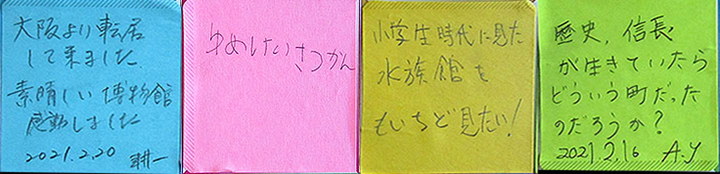 大阪より転居
して来ました
素晴しい博物館
感動しました
2021.2.20 耕一
ゆめけいさつかん
小学生時代に見た
水族館を
もいちど見たい!
歴史,信長
が生きていたら
どういう町だった
のだろうか?
2021.2.16 A.Y